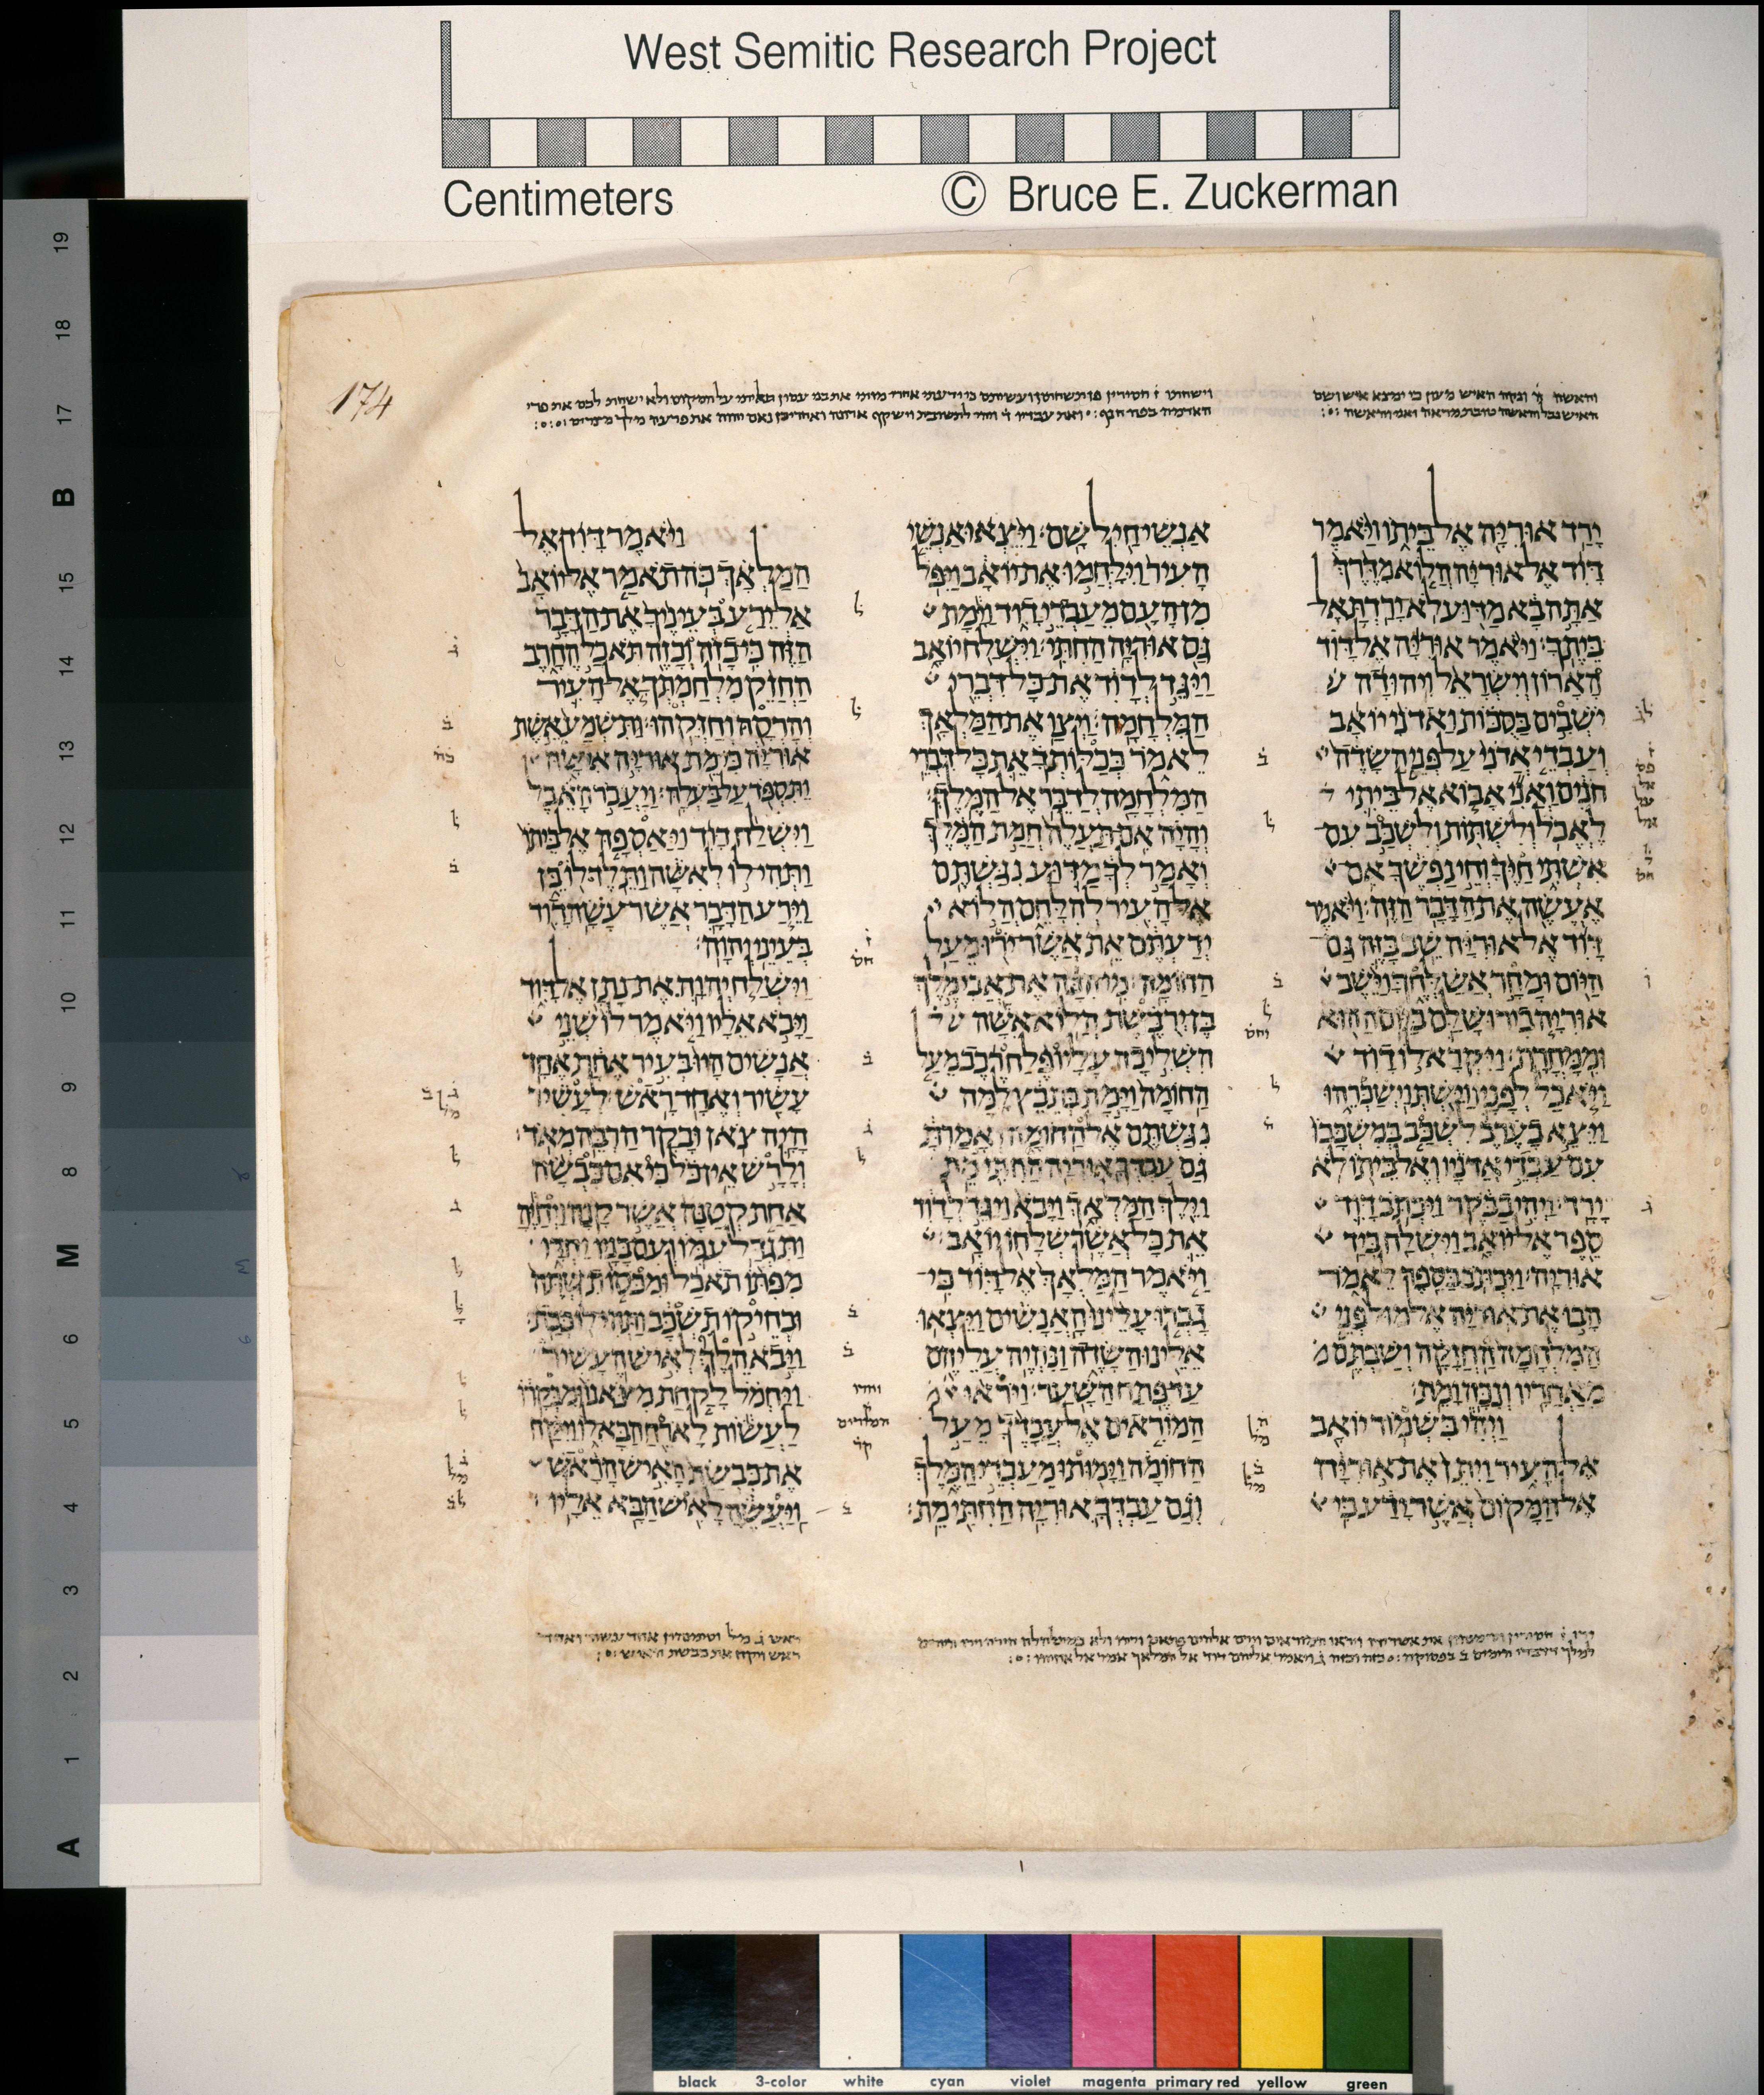 West Semitic Research Project
Centimeters
© Bruce E. Zuckerman
174
ירד אוריה אל ביתו ויאמר
דוד אל אוריה הלוא מדרך
אתה בא מדוע לא ירדת אל
ביתך׃ ויאמר אוריה אל דוד
הארון וישראל ויהודה
ישבים בסכות ואדני יואב
ועבדי אדני על פני השדה
חנים ואני אבוא אל ביתי
לאכל ולשתות ולשכב עם
אשתי חיך וחי נפשך אם
אעשה את הדבר הזה׃ ויאמר
דוד אל אוריה שב בזה גם
היום ומחר אשלחך וישב
אוריה בירושלם ביום ההוא
וממחרת׃ ויקרא לו דוד
ויאכל לפניו וישת וישכרהו
ויצא בערב לשכב במשכבו
עם עבדי אדניו ואל ביתו לא
ירד׃ ויהי בבקר ויכתב דוד
ספר אל יואב וישלח ביד
אוריה׃ ויכתב בספר לאמר
הבו את אוריה אל מול פני
המלחמה החזקה ושבתם
מאחריו ונכה ומת׃
ויהי בשמור יואב
אל העיר ויתן את אוריה
אל המקום אשר ידע כי
אנשי חיל שם׃ ויצאו אנשי
העיר וילחמו את יואב ויפל
מן העם מעבדי דוד וימת
גם אוריה החתי׃ וישלח יואב
ויגד לדוד את כל דברי
המלחמה׃ ויצו את המלאך
לאמר ככלותך את כל דברי
המלחמה לדבר אל המלך׃
והיה אם תעלה חמת המלך
ואמר לך מדוע נגשתם
אל העיר להלחם הלוא
ידעתם את אשר ירו מעל
החומה׃ מי הכה את אבימלך
בן ירבשת הלוא אשה
השליכה עליו פלח רכב מעל
החומה וימת בתבץ למה
נגשתם אל החומה ואמרת
גם עבדך אוריה החתי מת׃
וילך המלאך ויבא ויגד לדוד
את כל אשר שלחו יואב׃
ויאמר המלאך אל דוד כי
גברו עלינו האנשים ויצאו
אלינו השדה ונהיה עליהם
עד פתח השער׃ ויראו
המוראים אל עבדך מעל
החומה וימותו מעבדי המלך
וגם עבדך אוריה החתי מת׃
ויאמר דוד אל
המלאך כה תאמר אל יואב
אל ירע בעיניך את הדבר
הזה כי כזה וכזה תאכל החרב
החזק מלחמתך אל העיר
והרסה וחזקהו׃ ותשמע אשת
אוריה כי מת אוריה אישה
ותספד על בעלה׃ ויעבר האבל
וישלח דוד ויאספה אל ביתו
ותהי לו לאשה ותלד לו בן
וירע הדבר אשר עשה דוד
בעיני יהוה׃
וישלח יהוה את נתן אל דוד
ויבא אליו ויאמר לו שני
אנשים היו בעיר אחת אחד
עשיר ואחד ראש׃ לעשיר
היה צאן ובקר הרבה מאד׃
ולרש אין כל כי אם כבשה
אחת קטנה אשר קנה ויחיה
ותגדל עמו ועם בניו יחדו
מפתו תאכל ומכסו תשתה
ובחיקו תשכב ותהי לו כבת׃
ויבא הלך לאיש העשיר
ויחמל לקחת מצאנו ומבקרו
לעשות לארח הבא לו ויקח
את כבשת האיש הראש
ויעשה לאיש הבא אליו׃
19
18
17
B
16
15
14
13
12
11
10
9
8
M
6
5
4
3
2
1
A
black 3-color white cyan violet magenta primary red yellow green